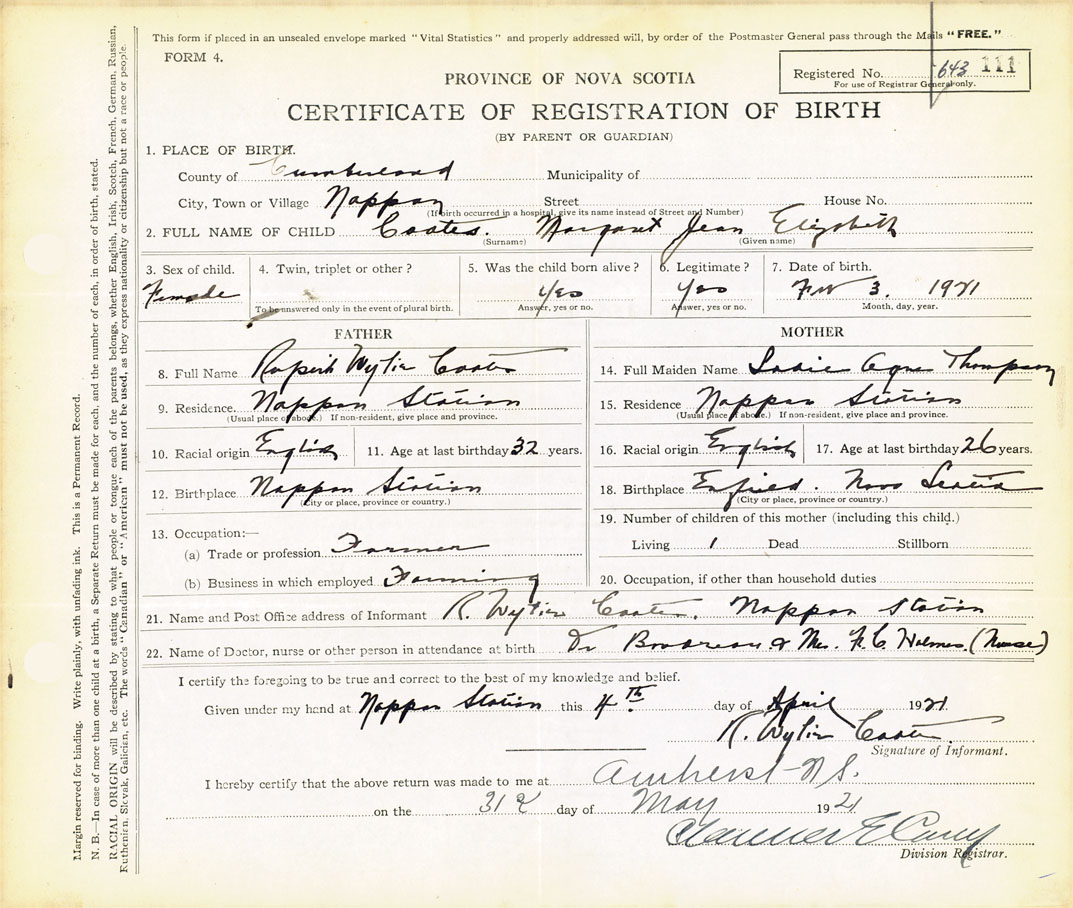 This form if placed in an unsealed envelope marked "Vital Statistics" and properly addressed will, by order of the Postmaster General pass through the Mails "FREE."
FORM 4.
Registered No. 643 111
For use of Registrar General only.
PROVINCE OF NOVA SCOTIA
CERTIFICATE OF REGISTRATION OF BIRTH
(BY PARENT OR GUARDIAN)
1. PLACE OF BIRTH.
County of Cumberland Municipality of
City, Town or Village Nappan Street House No.
(If birth occurred in a hospital, give its name instead of Street and Number)
2. FULL NAME OF CHILD Coates. Margaret Jean Elizabeth
(Surname) (Given name)
3. Sex of child. 4. Twin, triplet or other? 5. Was the child born alive? 6. Legitimate? 7. Date of birth.
Female yes yes Feb 3. 1921
To be answered only in the event of plural birth. Answer, yes or no. Answer, yes or no. Month, day, year.
FATHER
8. Full Name Rupert Wylie Coates
9. Residence. Nappan Station
(Usual place of abode.) If non-resident, give place and province.
10. Racial origin English 11. Age at last birthday 32 years.
12. Birthplace Nappan Station
(City or place, province or country.)
13. Occupation:—
(a) Trade or profession Farmer
(b) Business in which employed Farming
MOTHER
14. Full Maiden Name Sadie Agnes Thompson
15. Residence Nappan Station
(Usual place of abode.) If non-resident, give place and province.
16. Racial origin English 17. Age at last birthday 26 years.
18. Birthplace Enfield. Nova Scotia
(City or place, province or country.)
19. Number of children of this mother (including this child.)
Living 1 Dead Stillborn
20. Occupation, if other than household duties
21. Name and Post Office address of Informant R. Wylie Coates, Nappan Station
22. Name of Doctor, nurse or other person in attendance at birth Dr & Mrs. F. C. Holmes. (Nurse)
I certify the foregoing to be true and correct to the best of my knowledge and belief.
Given under my hand at Nappan Station this 4th day of April 1921
R. Wylie Coates
Signature of Informant.
I hereby certify that the above return was made to me at Amherst N.S.
on the 31 day of May 1921
Division Registrar.
Margin reserved for binding. Write plainly, with unfading ink. This is a Permanent Record.
N. B.—In case of more than one child at a birth, a Separate Return must be made for each, and the number of each, in order of birth, stated.
RACIAL ORIGIN will be described by stating to what people or tongue each of the parents belongs, whether English, Irish, Scotch, French, German, Russian,
Ruthenian, Slovak, Galician, etc. The words "Canadian" or "American" must not be used, as they express nationality or citizenship but not a race or people.